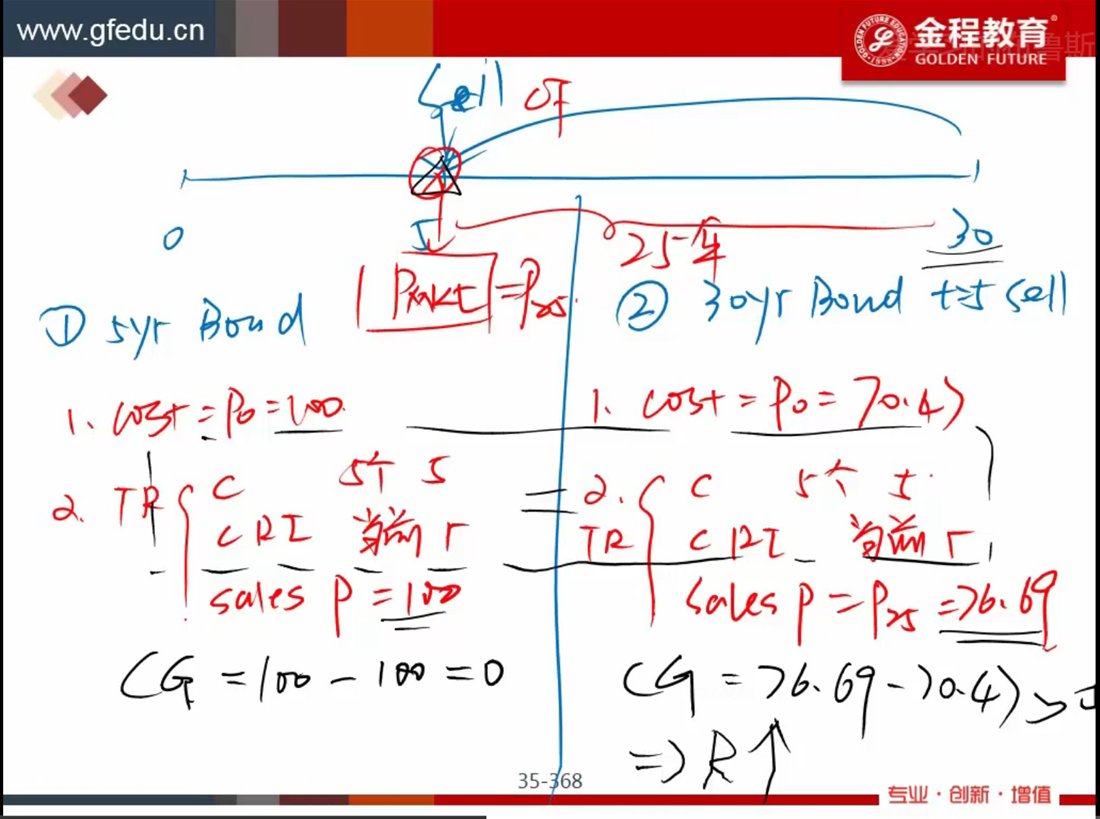 www.gfedu.cn
金程教育
GOLDEN FUTURE
Sell
CF
0
5
30
25年
Pmkt = P25
① 5yr Bond
② 30yr Bond t=5 sell
1. cost = P0 = 100
1. cost = P0 = 70.47
2. TR
C 5个 5
CRI 当前 r
sales P = 100
=
2. TR
C 5个 5
CRI 当前 r
sales P = P25 = 76.69
CG = 100 - 100 = 0
CG = 76.69 - 70.47 >
=> R↑
35-368
专业·创新·增值